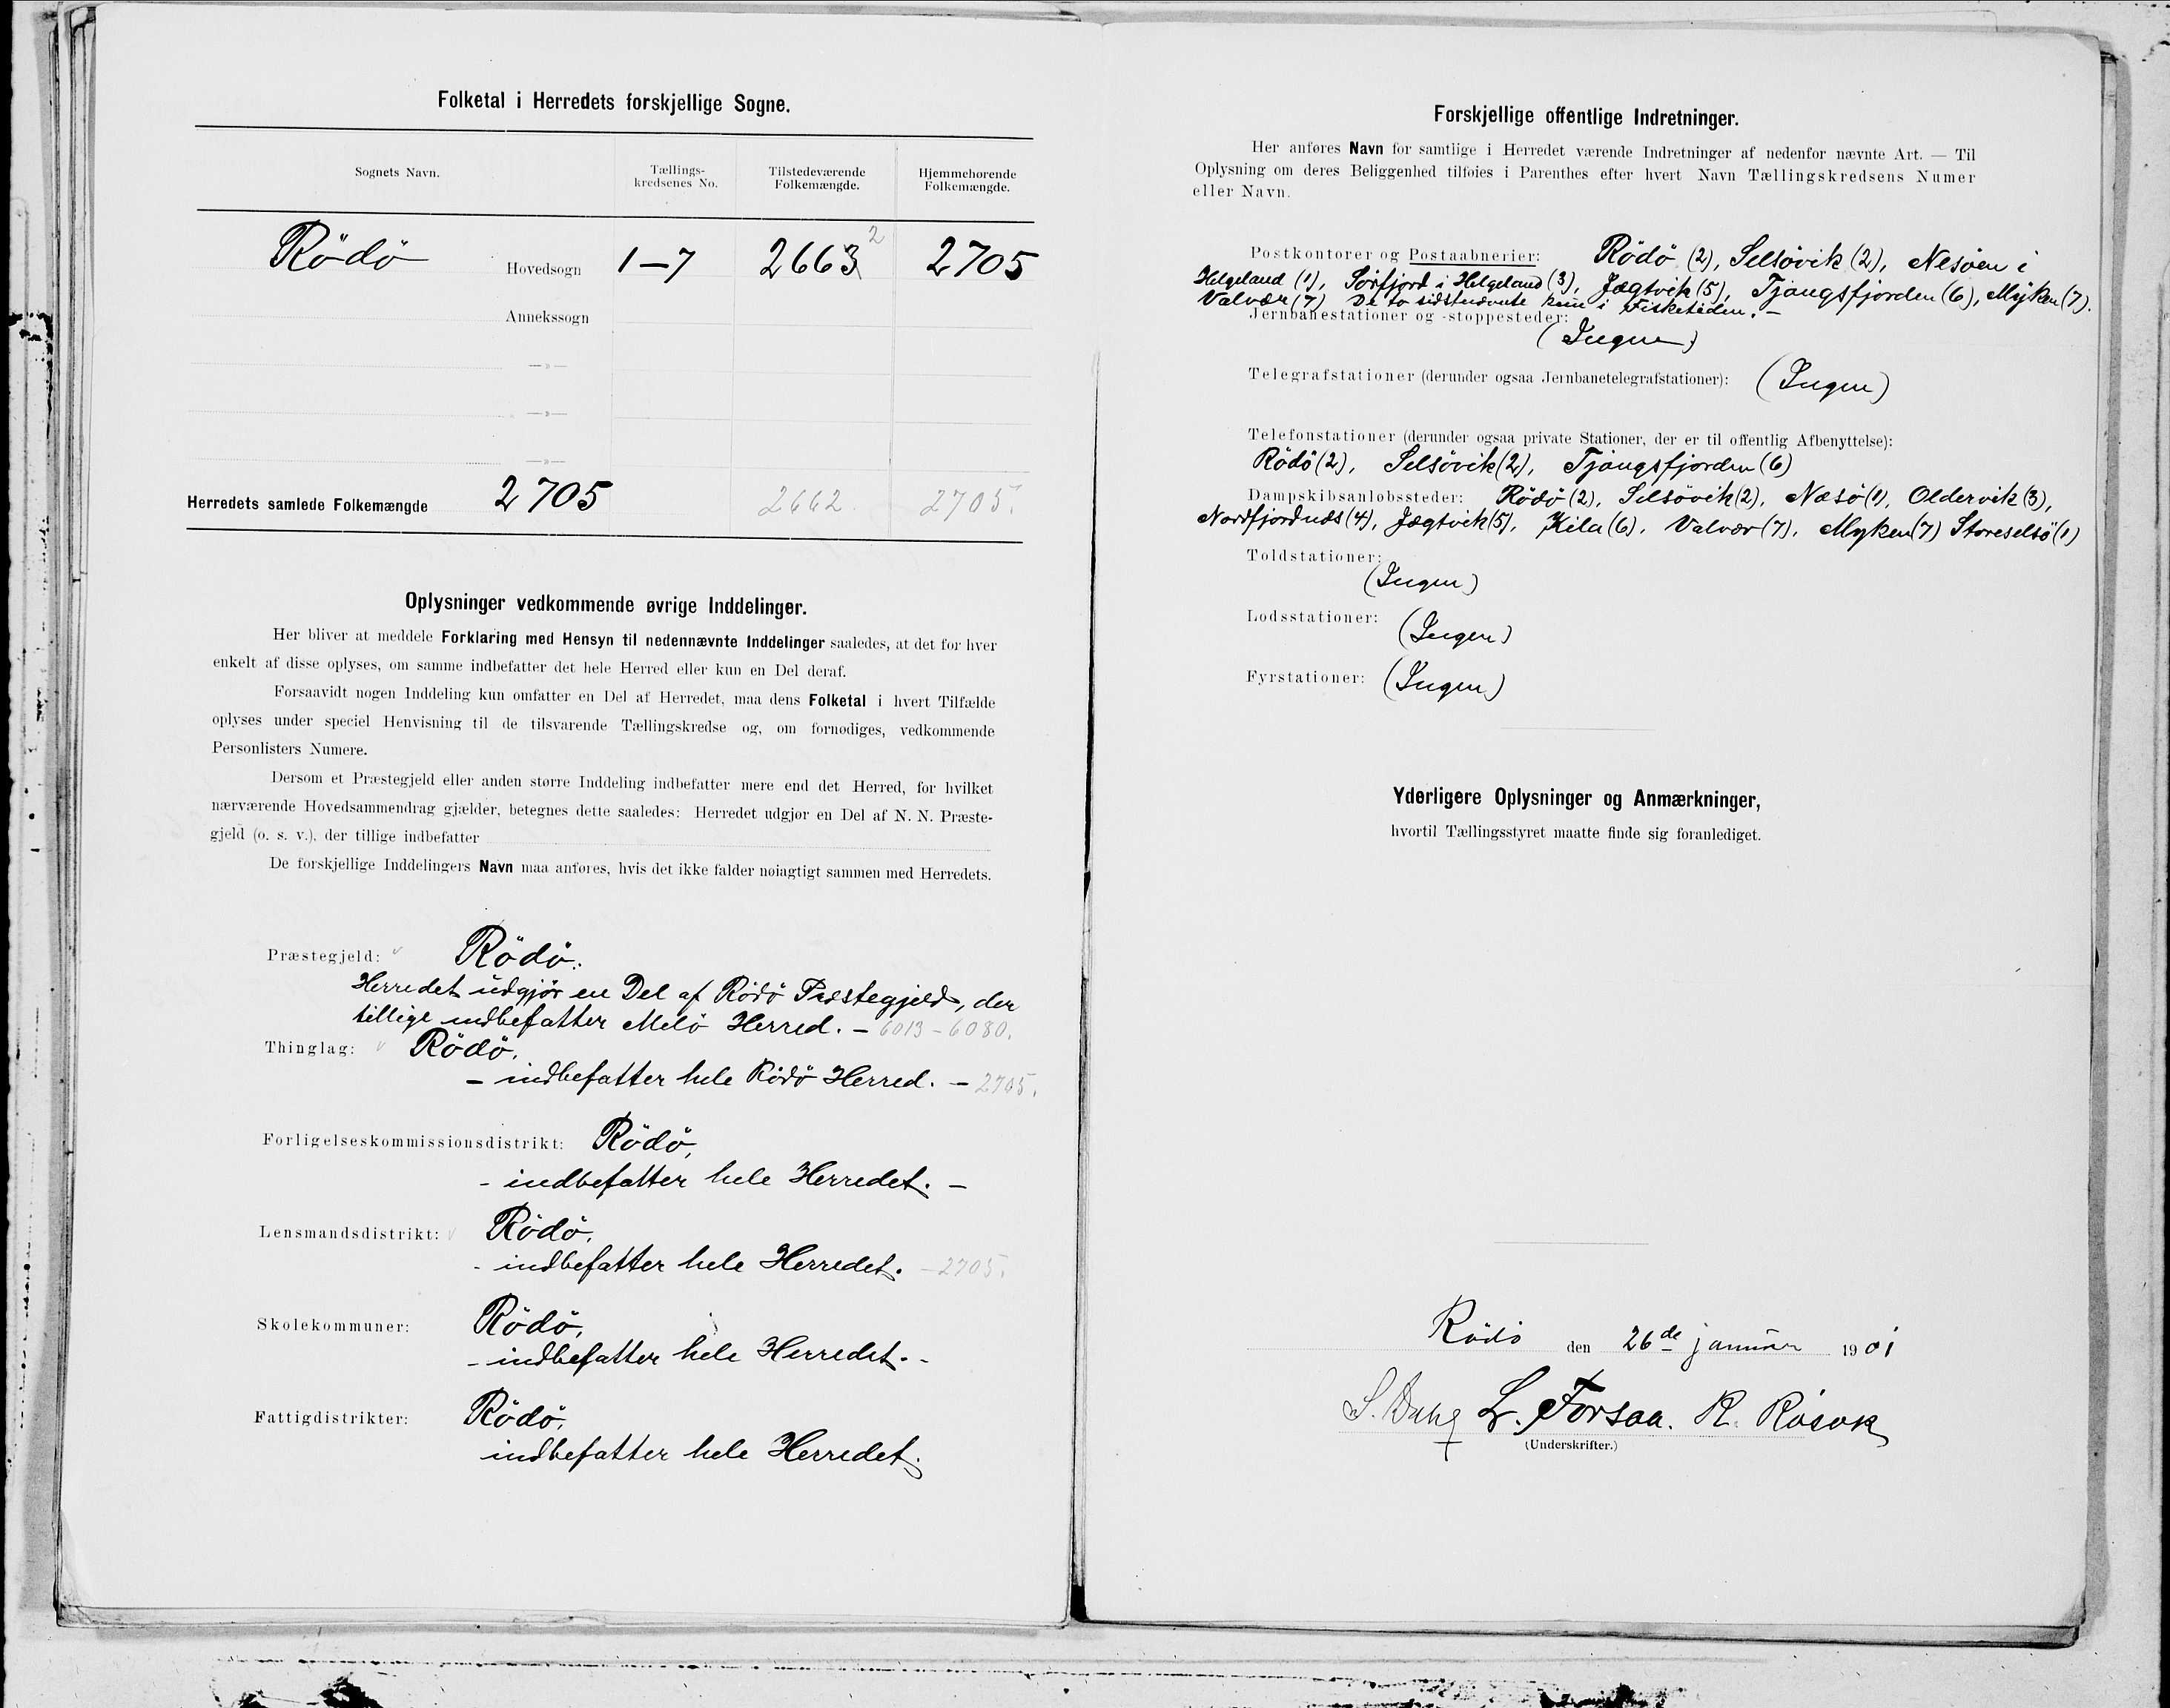 Folketal i Herredets forskjellige Sogne.
Sognets Navn.
Tællings-
kredsenes No.
Tilstedeværende
Folkemængde.
Hjemmehørende
Folkemængde.
Rödö Hovedsogn 1–7 2663 2 2705
Annekssogn
—»—
—»—
—»—
Herredets samlede Folkemængde 2705 2662 2705.
Oplysninger vedkommende øvrige Inddelinger.
Her bliver at meddele Forklaring med Hensyn til nedennævnte Inddelinger saaledes, at det for hver
enkelt af disse oplyses, om samme indbefatter det hele Herred eller kun en Del deraf.
Forsaavidt nogen Inddeling kun omfatter en Del af Herredet, maa dens Folketal i hvert Tilfælde
oplyses under speciel Henvisning til de tilsvarende Tællingskredse og, om fornødiges, vedkommende
Personlisters Numere.
Dersom et Præstegjeld eller anden større Inddeling indbefatter mere end det Herred, for hvilket
nærværende Hovedsammendrag gjælder, betegnes dette saaledes: Herredet udgjør en Del af N. N. Præste-
gjeld (o. s. v.), der tillige indbefatter
De forskjellige Inddelingers Navn maa anføres, hvis det ikke falder nøiagtigt sammen med Herredets.
Præstegjeld: Rödö.
Herredet udgjör en Del af Rödö Præstegjeld, der
tillige indbefatter Melö Herred. – 6013 – 6080.
Thinglag: Rödö,
– indbefatter hele Rödö Herred. – 2705.
Forligelseskommissionsdistrikt: Rödö,
- indbefatter hele Herredet. –
Lensmandsdistrikt: Rödö,
- indbefatter hele Herredet. – 2705.
Skolekommuner: Rödö,
- indbefatter hele Herredet. -
Fattigdistrikter: Rödö,
indbefatter hele Herredet.
Forskjellige offentlige Indretninger.
Her anføres Navn for samtlige i Herredet værende Indretninger af nedenfor nævnte Art. — Til
Oplysning om deres Beliggenhed tilføies i Parenthes efter hvert Navn Tællingskredsens Numer
eller Navn.
Postkontorer og Postaabnerier: Rödö (2), Selsövik (2), Nesöen i
Helgeland (1), Sörfjord i Helgeland (3), Jægtvik (5), Tjangsfjorden (6), Myken (7).
Valvær (7) De to sidstnævnte kun i Fisketiden. –
Jernbanestationer og -stoppesteder:
(Ingen)
Telegrafstationer (derunder ogsaa Jernbanetelegrafstationer): (Ingen)
Telefonstationer (derunder ogsaa private Stationer, der er til offentlig Afbenyttelse):
Rödö (2), Selsövik (2), Tjangsfjorden (6)
Dampskibsanløbssteder: Rödö (2), Selsövik (2), Næsö (1), Oldervik (3),
Nordfjordnæs (4), Jægtvik (5), Kila (6), Valvær (7), Myken (7) Storeselsö (1)
Toldstationer:
(Ingen)
Lodsstationer: (Ingen)
Fyrstationer: (Ingen)
Yderligere Oplysninger og Anmærkninger,
hvortil Tællingsstyret maatte finde sig foranlediget.
Rödö den 26de januar 1901
S. Dahl L. Forsaa. R. Rösok
(Underskrifter.)